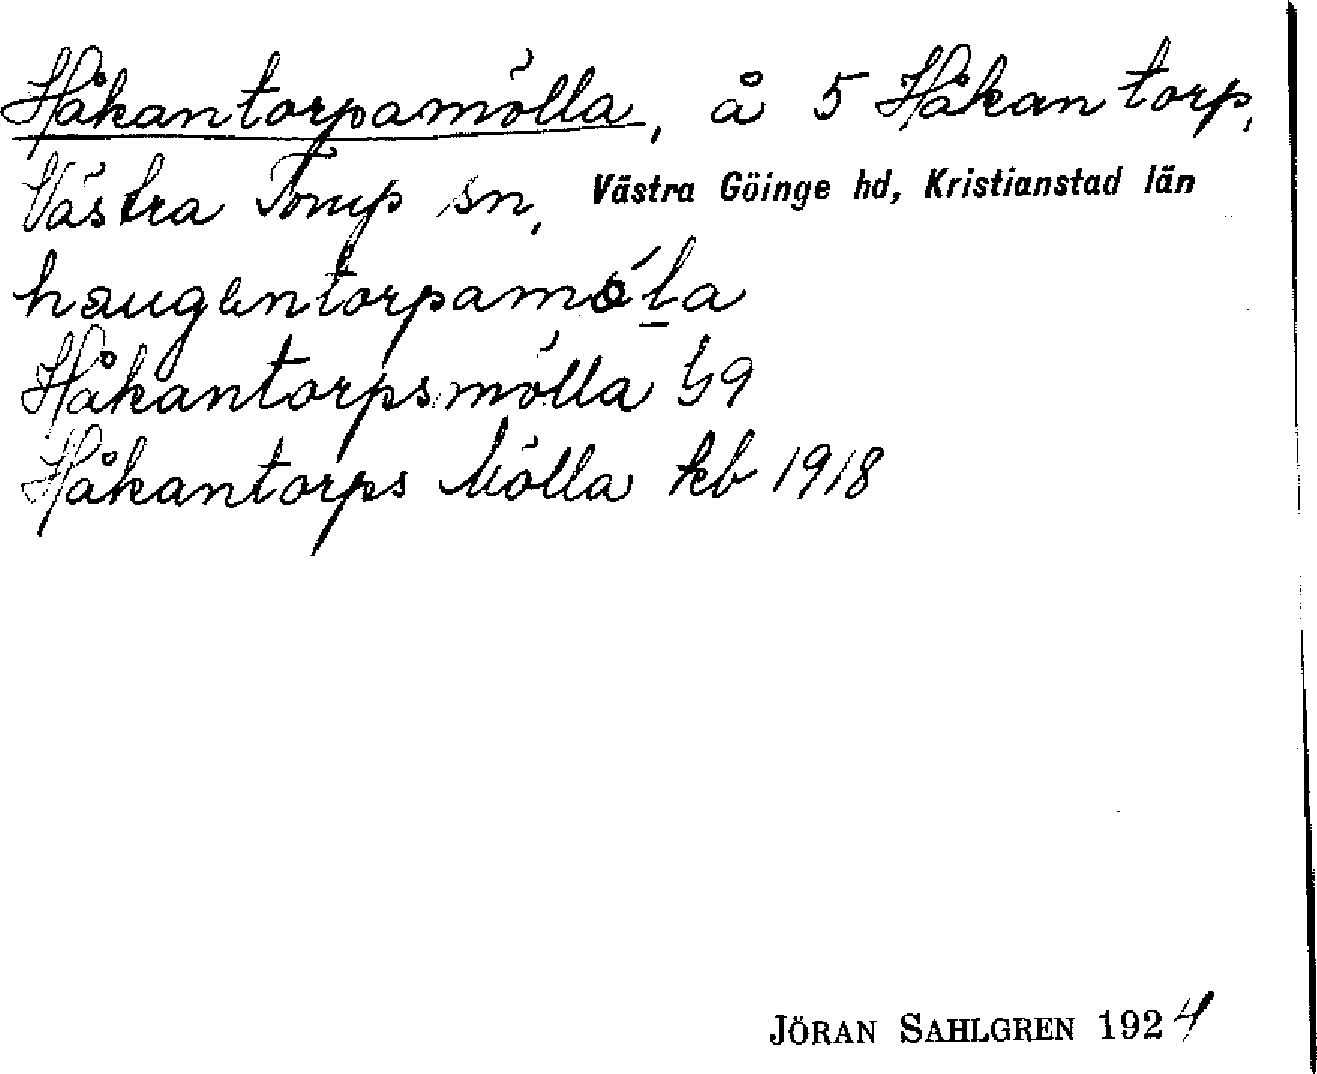 Håkantorpamölla, å 5 Håkantorp,
Västra Torup sn, Västra Göinge hd, Kristianstad län
Håkantorpsmölla G9
Håkantorps Mölla kb 1918
JÖRAN SAHLGREN 1924